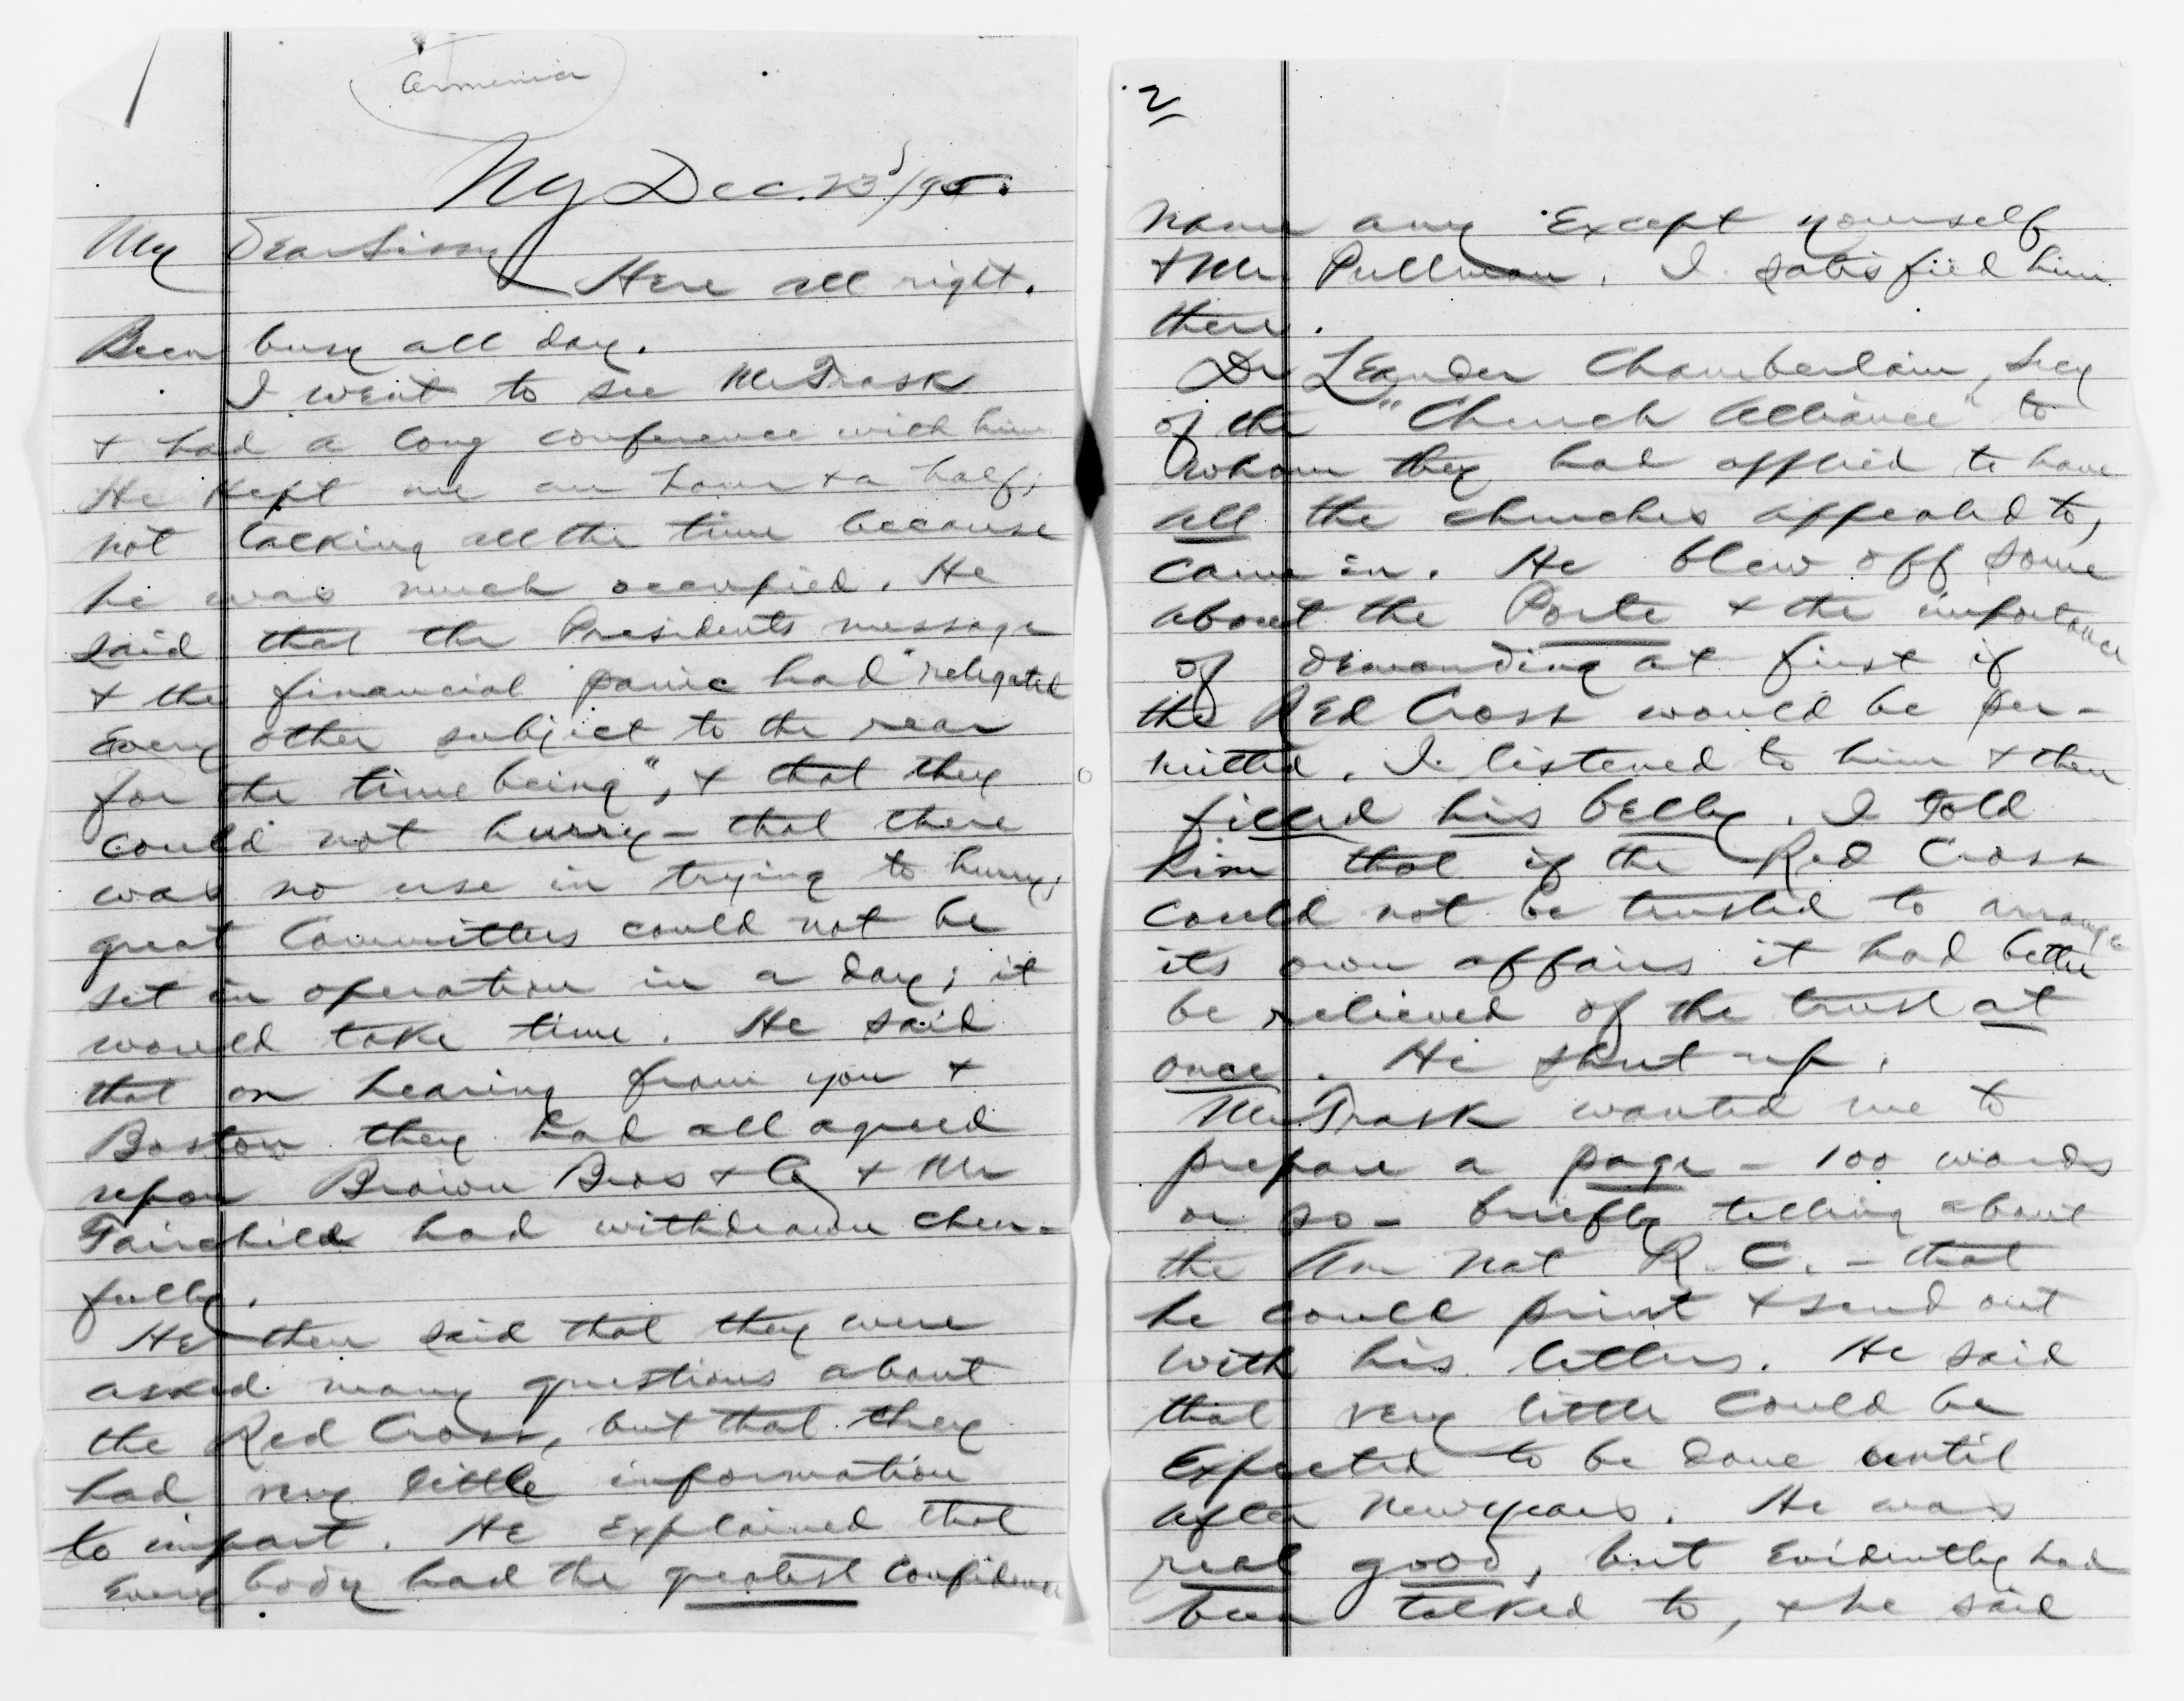 Armenia
NY Dec. 23/95.
My Dear Sissy
Here all right.
Been busy all day.
I went to see Mr Trask
& had a long conference with him
He kept me an hour & a half;
not talking all the time because
he was much occupied. He
said that the Presidents message
& the financial panic had "relegated
Every other subject to the rear
for the time being", & that they
could not hurry – that there
was no use in trying to hurry;
great Committees could not be
set in operation in a day; it
would take time. He said
that on hearing from you &
Boston they had all agreed
upon Brown Bros & Co & Mr
Fairchild had withdrawn cheer=
fully.
He then said that they were
asked many questions about
the Red Cross, but that they
had very little information
to impart. He Explained that
Every body had the greatest Confidence
2
name any Except yourself
& Mr Pullman. I satisfied him
there.
Dr Leander Chamberlain, Secy
of the "Church Alliance" to
whom they had applied to have
all the churches appealed to,
came in. He blew off some
about the Porte & the importance
of demanding at first if
the Red Cross would be per–
mitted. I listened to him & then
filled his belly. I told
him that if the Red Cross
could not be trusted to arrange
its own affairs it had better
be relieved of the trust at
once. He shut up.
Mr Trask wanted me to
prepare a page – 100 words
or so – briefly telling about
the Am Nat R. C. – that
he could print & send out
with his letters. He said
that very little could be
Expected to be done until
after New years. He was
real good, but Evidently had
been talked to, & he said